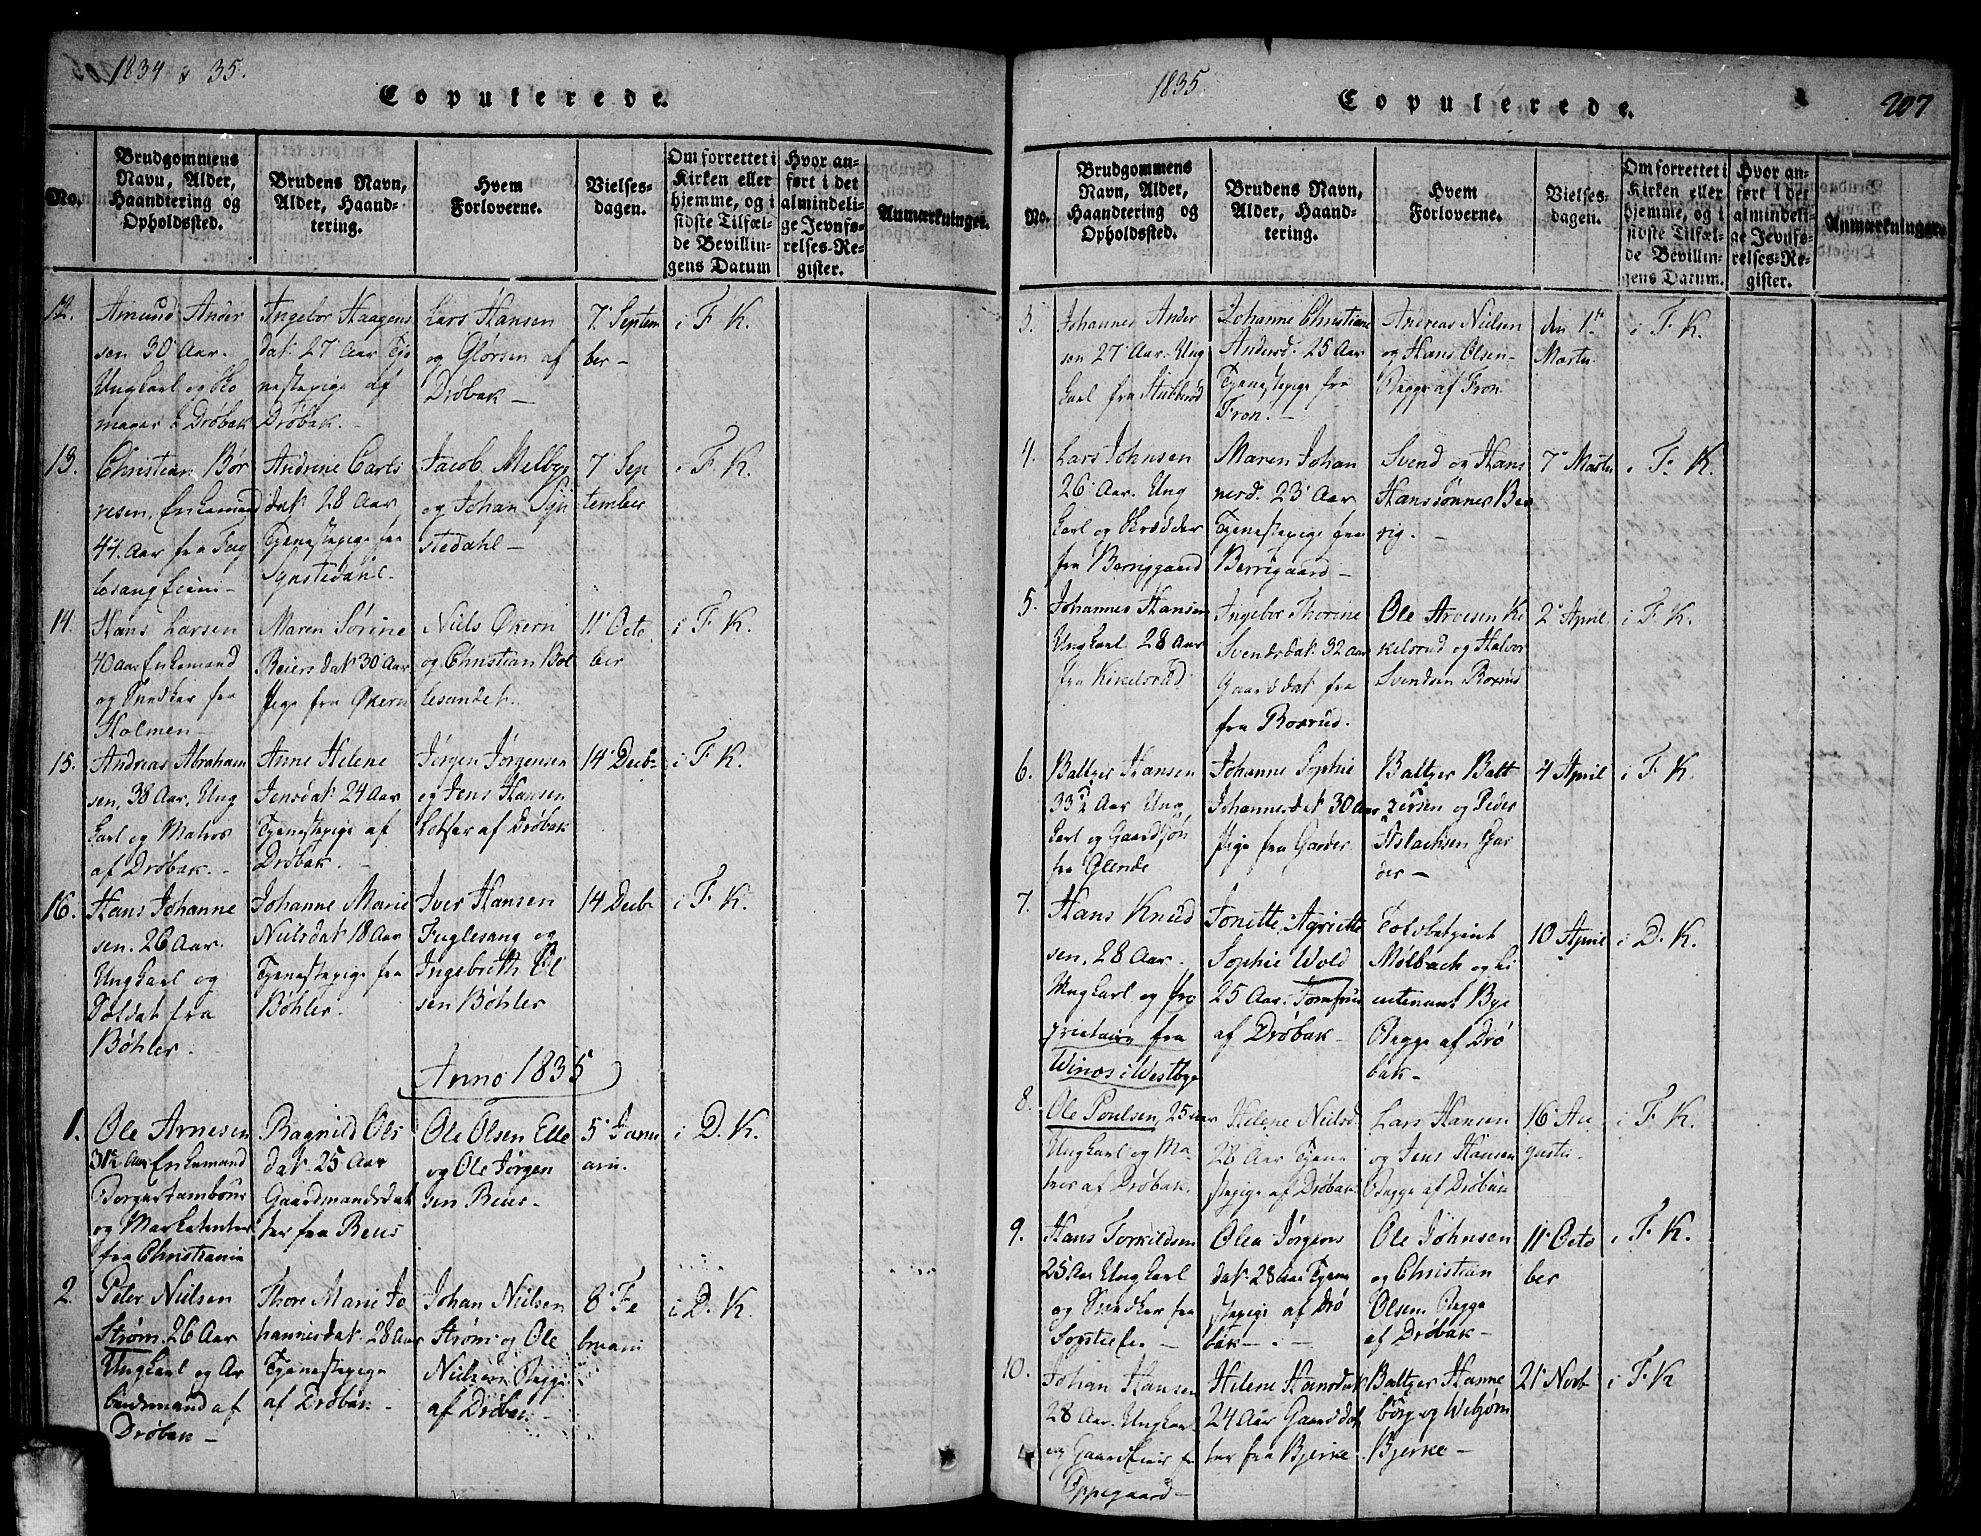 1834 & 35.
Copulerede.
No.
Brudgommens Navn, Alder, Haandtering og Opholdssted.
Brudens Navn, Alder, Haandtering.
Hvem Forloverne.
Vielsesdagen.
Om forrettet i Kirken eller hjemme, og i sidste Tilfælde Bevillingens Datum
Hvor anført i det almindelige Jevnførelses-Register.
Anmærkninger.
12.
Amund Ander
sen 30 Aar.
Ungkarl og Sko
mager i Drøbak
Ingebor Haagens
dat: 27 Aar Tje
nestepige af
Drøbak.
Lars Hansen
og Glørsen af
Drøbak
7 Septem
ber
i F. K.
13.
Christian Bør
resen, Enkemand
44 Aar fra Fug
lesang Eiem
Andrine Carls
dat: 28 Aar
Tjenestepige fra
Synstedahl
Jacob Melbye
og Johan Syn
stedahl
7 Sep
tember
i F. K.
14.
Hans Larsen
40 aar Enkemand
og Snedker fra
Holmen
Maren Sørine
Beiersdat: 30 Aar
Pige fra Økern
Niels Økern
og Christian Bol
lesandet.
11 Octo
ber
i F. K.
15.
Andreas Abraham
sen, 38 Aar, Ung
karl og Matros
af Drøbak.
Anne Helene
Jensdat: 24 Aar
Tjenestepige af
Drøbak.
Jørgen Jørgensen
og Jens Hansen
Lotser af Drøbak
14 Decbr
i F. K.
16.
Hans Johanne
sen. 26 Aar.
Ungkarl og
Soldat fra
Bøhler.
Johanne Marie
Nielsdat: 18 Aar
Tjenestepige fra
Bøhler.
Iver Hansen
Fuglesang og
Ingebreth Ol
sen Bøhler
14 Decbr
i F. K.
Anno 1835
1.
Ole Arnesen
31½ Aar Enkemand
Borger tambour
og Marketenter
fra Christiania
Ragnild Ols
dat. 25 Aar
Gaardmandsdat
ter fra Reus
Ole Olsen Elle
og Ole Jørgen
sen Reus
5 Janu
arii.
i D. K.
2.
Peter Nielsen
Strøm. 26 Aar
Ungkarl og Ar
beidsmand af
Drøbak
Thore Marie Jo
hannesdat: 28 Aar
Tjenestepige
af Drøbak
Johan Nielsen
Strøm og Ole
Nielsen Begge
af Drøbak
8 Fe
bruarii
i D. K.
1835
Copulerede.
207
No.
Brudgommens Navn, Alder, Haandtering og Opholdssted.
Brudens Navn, Alder, Haandtering.
Hvem Forloverne.
Vielsesdagen.
Om forrettet i Kirken eller hjemme, og i sidste Tilfælde Bevillingens Datum.
Hvor anført i det almindelige Jevnførelses-Register.
Anmærkninger.
3.
Johannes Ander
sen 27 Aar. Ung
karl fra Stubberud
Johanne Christiane
Andersd. 25 Aar
Tjenestepige fra
Fron.
Andreas Nielsen
og Hans Olsen
Begge af Fron
den 1ste
Martii
i F. K.
4.
Lars Johnsen
26 Aar. Ung
karl og Skrædder
fra Berriggaard
Maren Johan
nesd. 23 Aar
Tjenestepige fra
Berrigaard
Svend og Hans
Hanssønner Ber
rig.
7 Martii
i F. K.
5.
Johannes Hansen
Ungkarl 28 Aar
fra Kikelsrud
Ingebor Thorine
Svendsdat: 32 aar
Gaardsdat fra
fra Roxrud.
Ole Arvesen Ki
kelsrud og Halvor
Svendsen Roxrud
2 April
i F. K.
6.
Baltzer Hansen
33½ Aar Ung
karl og Gaardsøn
fra Glende
Johanne Sophie
Johannesdat 30 Aar
Pige fra Garder
Baltzer Balt
zersen og Peder
Aslachsen Gar
der
4 April
i F. K.
7.
Hans Knud
sen, 28 Aar.
Ungkarl og Pro
prietair fra
Winos i Westbye
Jonette Agriette
Sophie Wold
25 Aar. Jomfrue
af Drøbak
Toldbetjent
Mølbach og Li
eutenant Bye
Begge af Drø
bak
10 April
i D. K.
8.
Ole Poulsen, 25 aar
Ungkarl og Ma
tros af Drøbak.
Helene Nielsd.
28 Aar Tjene
stepige af Drøbak
Lars Hansen
og Jens Hansen
Begge af Drøbak
16 Au
gusti
i F. K.
9.
Hans Torkildsen
25 Aar Ungkarl
og Snedker fra
Sogstielen
Olea Jørgens
dat. 28 aar Tjene
stepige af Drø
bak
Ole Johnsen
og Christian
Olsen Begge
af Drøbak
11 Octo
ber
i F. K.
10.
Johan Hansen
28 Aar. Ungkarl
og Gaardeier fra
Oppegaard
Helene Hansdat
24 Aar Gaardsdat
ter fra Bjerke
Baltzer Hanne
borg og Wehjørn
Bjerke
21 Novb
i F. K